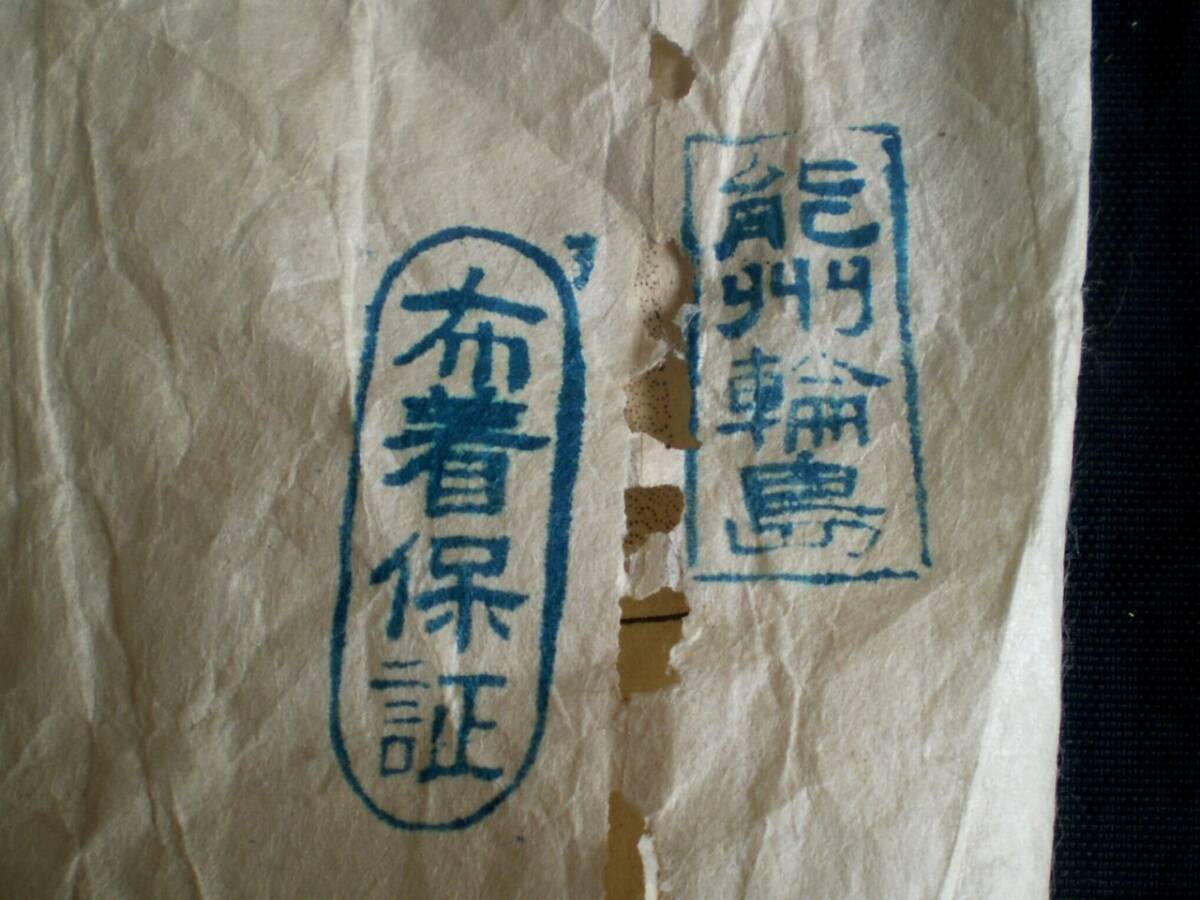 能州輪島
布着保証